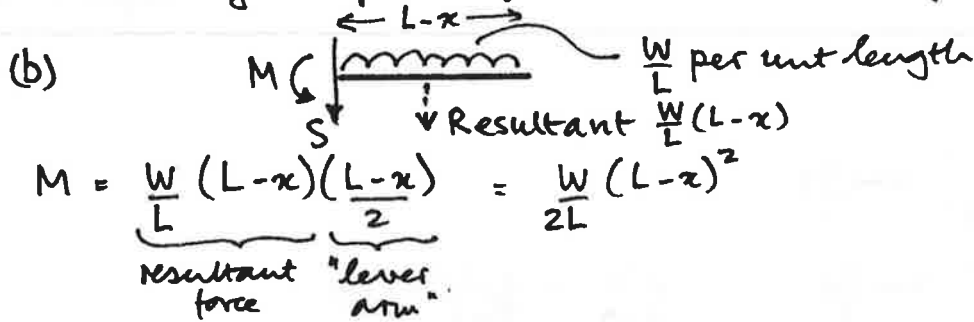 L-x
(b) M W/L per unit length
S Resultant W/L (L-x)
M = W/L (L-x) (L-x)/2 = W/2L (L-x)²
resultant "lever
force arm"